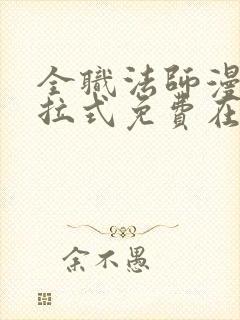 全職法師漫
拉式免費在
余不愚